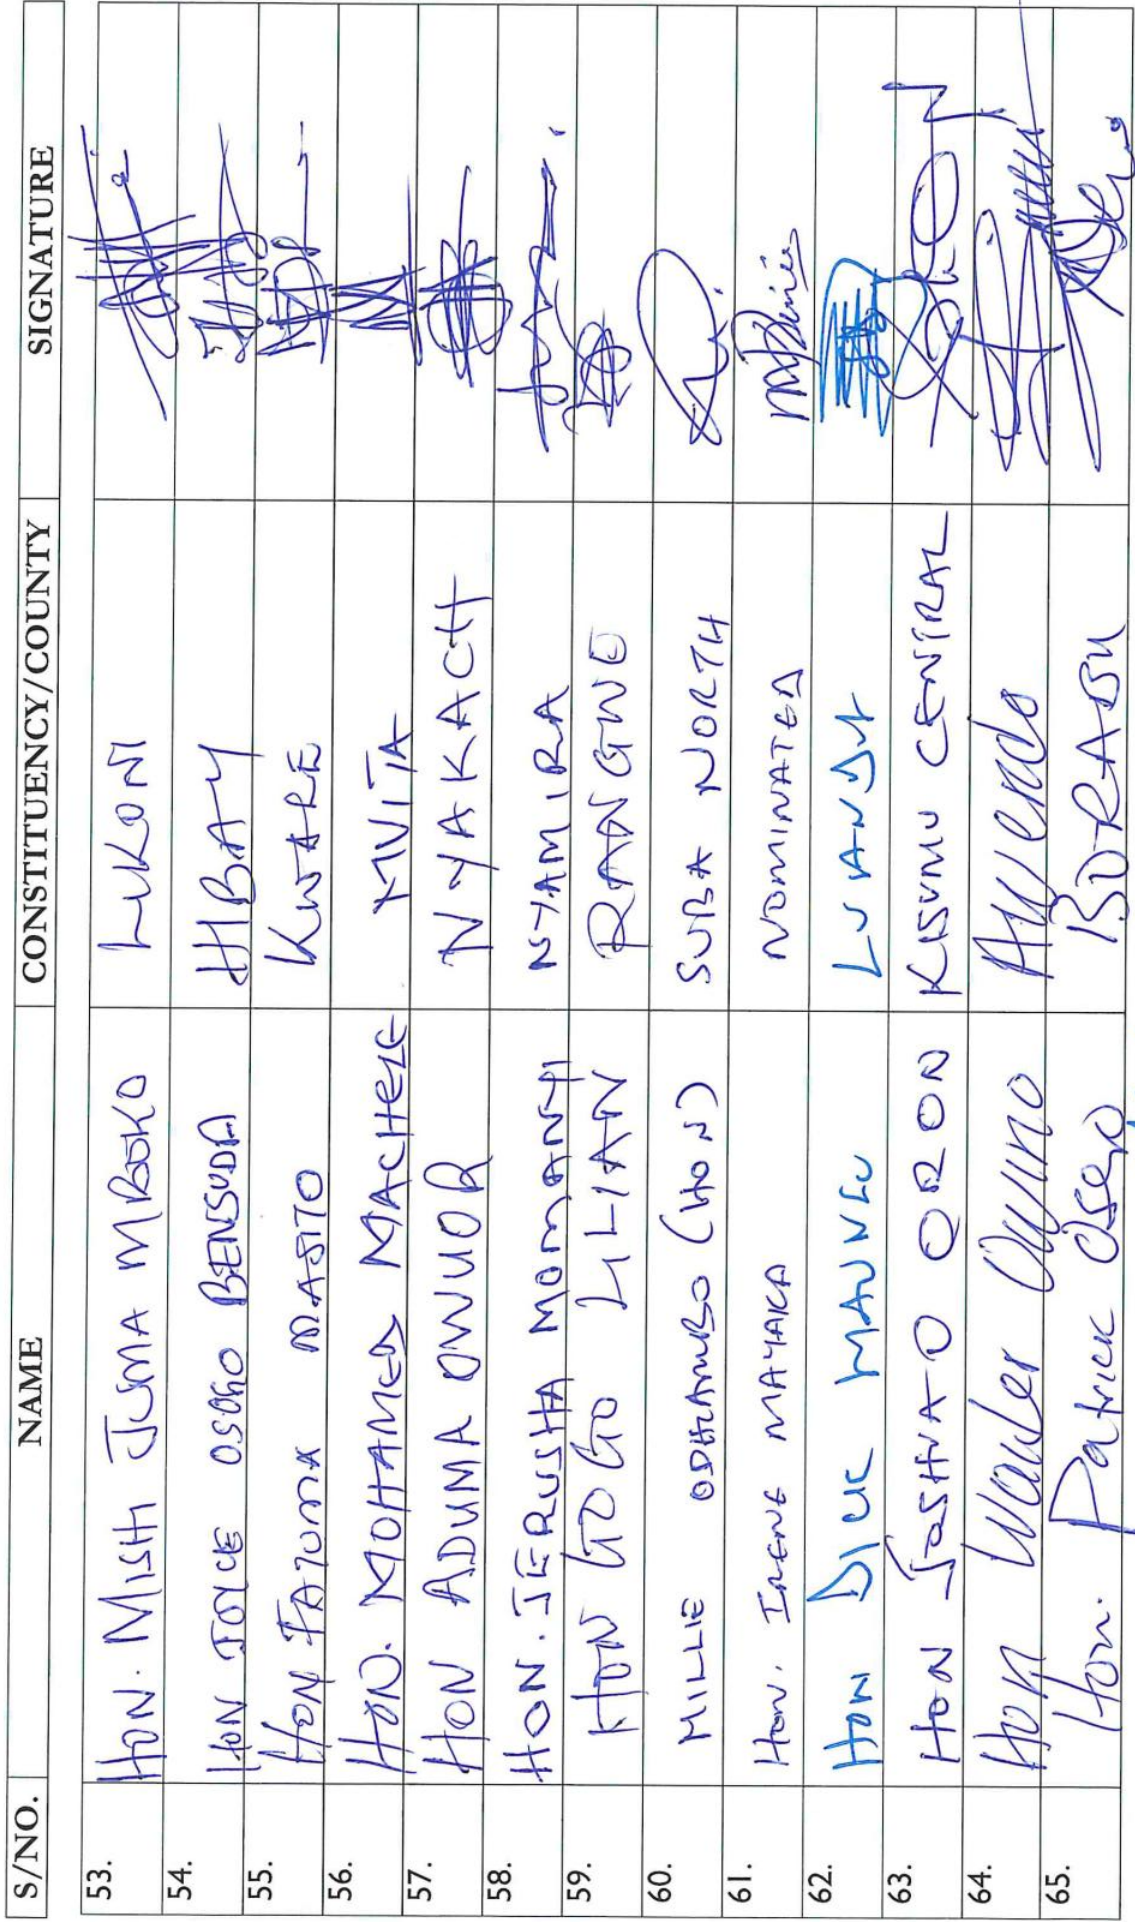 S/NO. NAME CONSTITUENCY/COUNTY SIGNATURE
53. HON. MISHI JUMA MBOKO LIKONI
54. HON JOYCE OSOGO BENSUDA H/BAY
55. HON FATUMA MASITO KWALE
56. HON. MOHAMED MACHELE MVITA
57. HON ADUMA OWUOR NYAKACH
58. HON. JERUSHA MOMANYI NYAMIRA
59. HON GOGO LILIAN RANGWE
60. MILLIE ODHIAMBO (HON) SUBA NORTH
61. HON. IRENE MAYAKA NOMINATED
62. HON DICK MAUNGU LUANDA
63. HON JOSHUA O ORON KISUMU CENTRAL
64. Hon Walter Owino Awendo
65. Hon. Patrick Osero BORABU